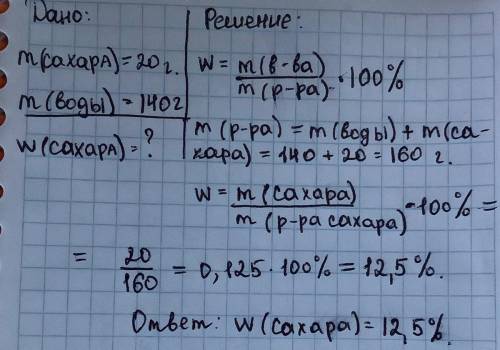 Дано:
m(сахара) = 20 г.
m(воды) = 140 г
W(сахара) = ?
Решение:
W = m(в-ва) / m(р-ра) · 100%
m(р-ра) = m(воды) + m(са-
хара) = 140 + 20 = 160 г.
W = m(сахара) / m(р-ра сахара) · 100% =
= 20/160 = 0,125 · 100% = 12,5%.
Ответ: W(сахара) = 12,5%.